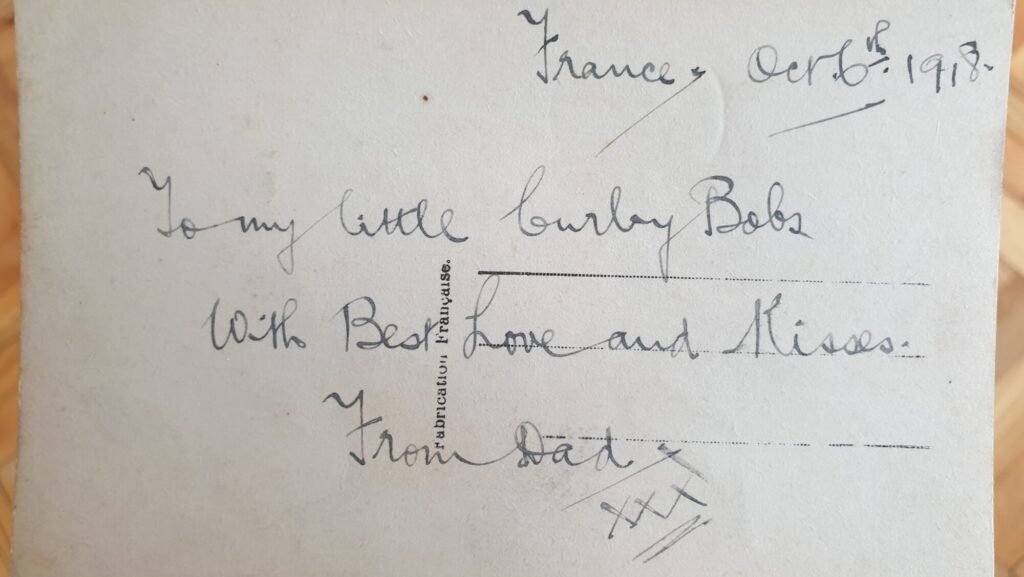 France, Oct. 6th. 1918.
To my little Curley Bobs
With Best Love and Kisses.
From Dad
XXX
Fabrication Française.